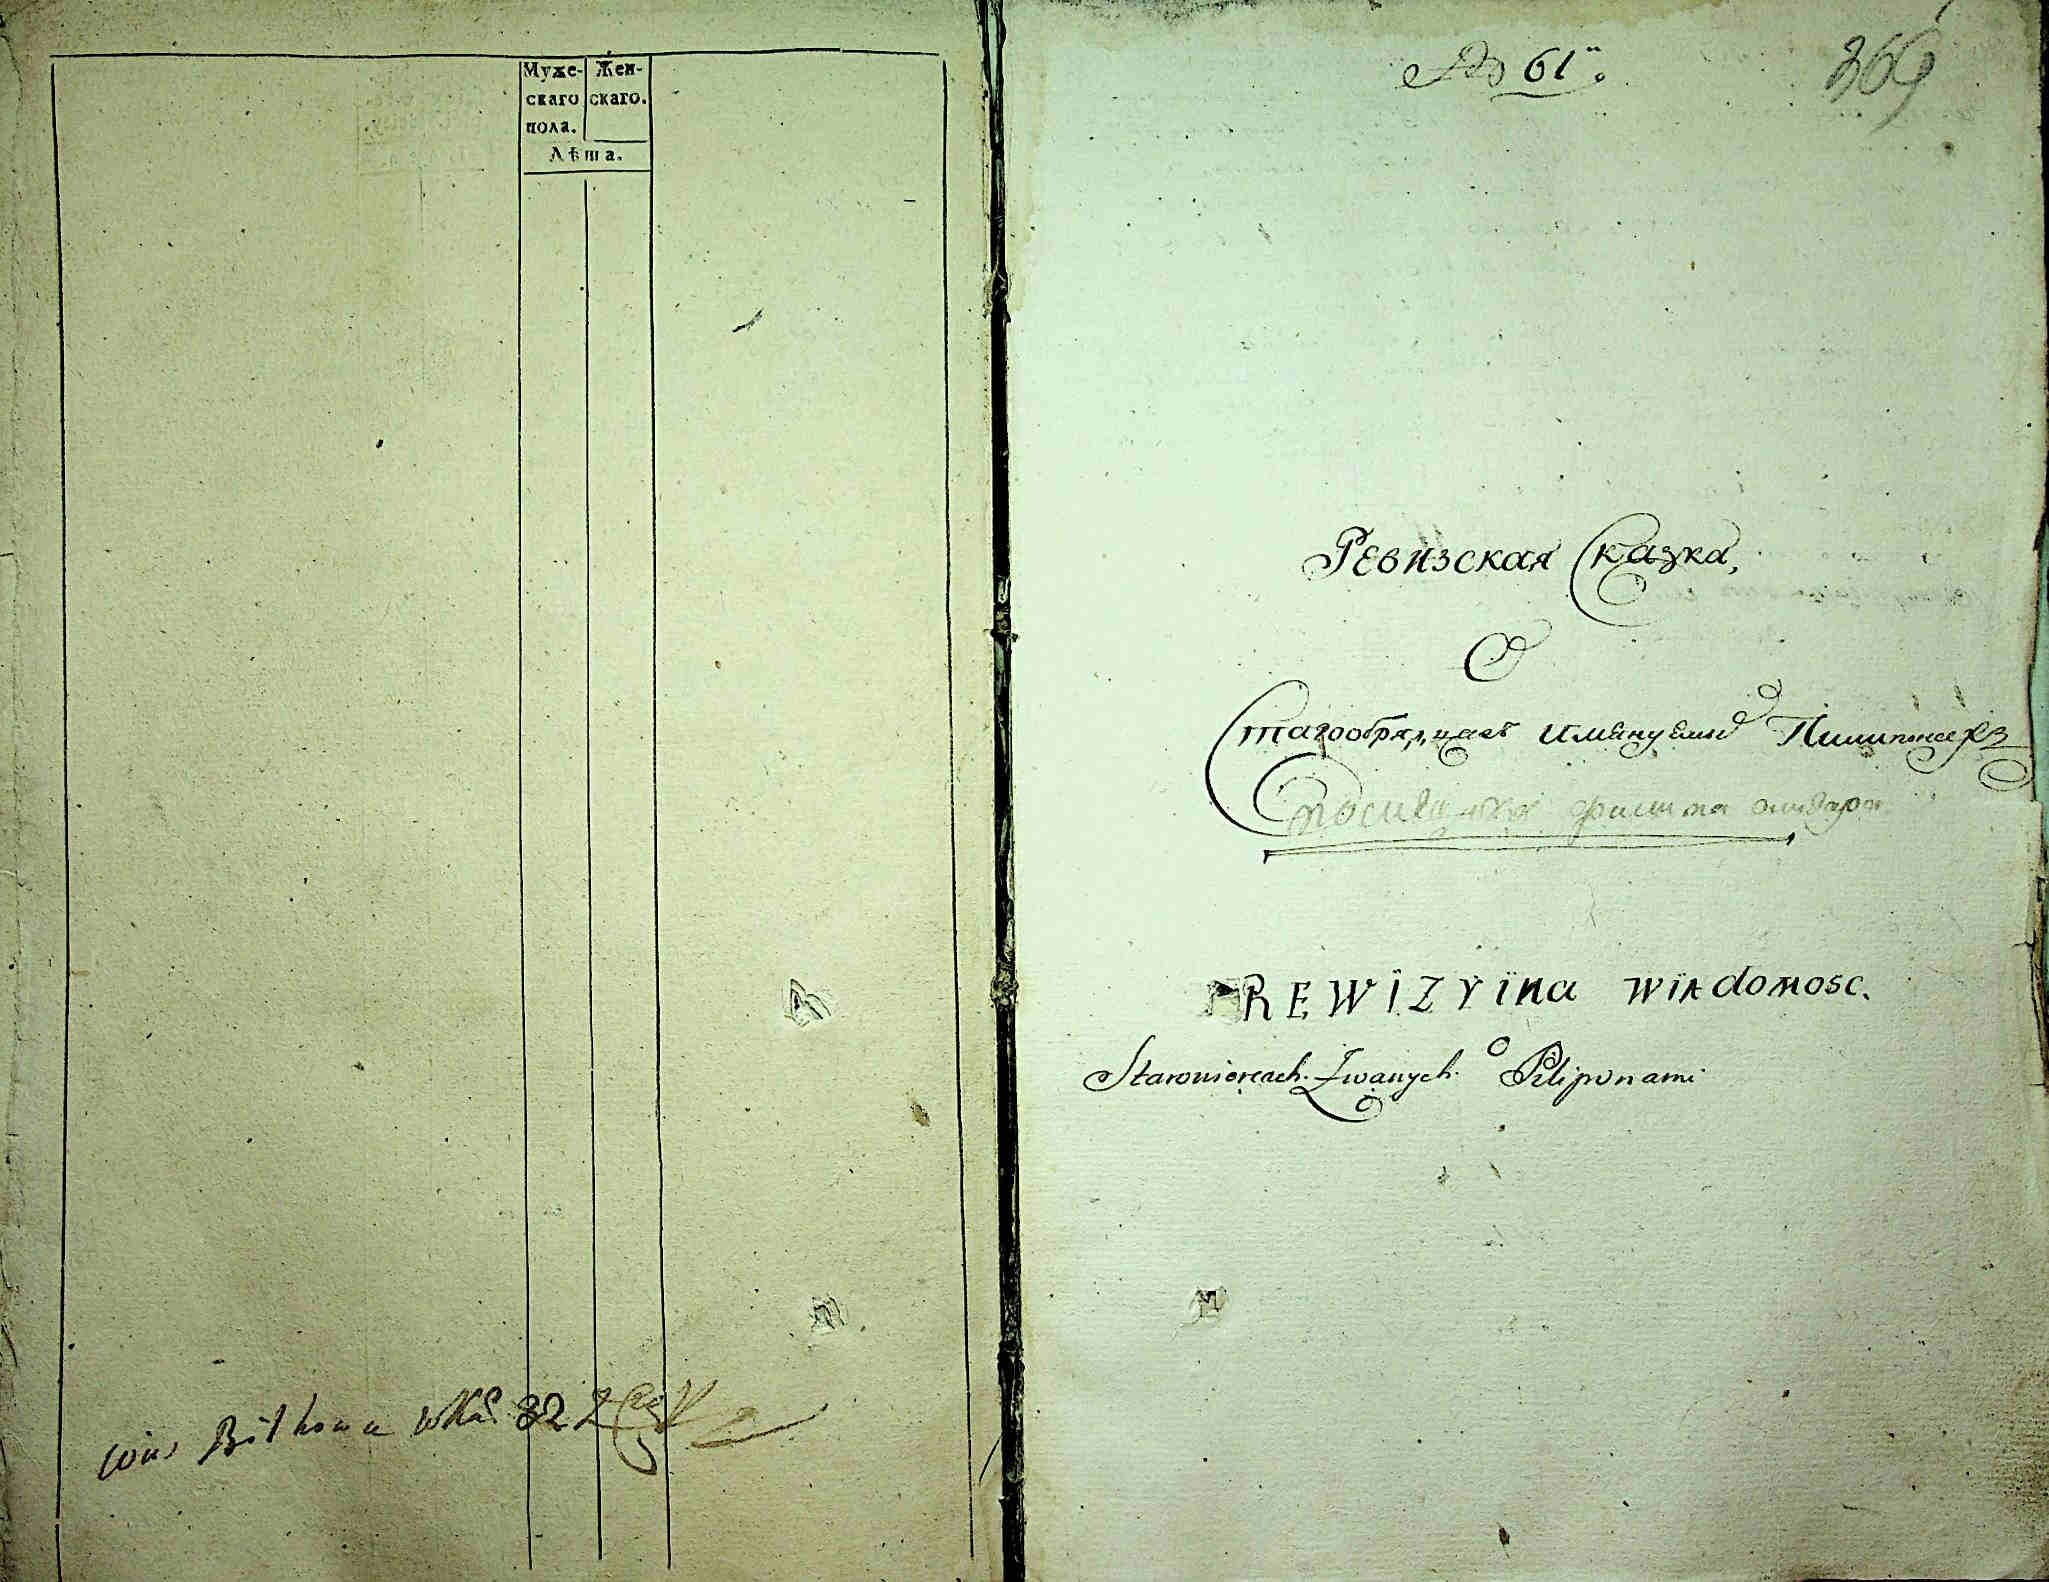 Муже-
скаго
пола.
Жен-
скаго.
Лѣта.
№ 61.
369
Ревизская Сказка,
О
Старообрядцахъ имянуемыхъ Пилипонахъ
REWIZYINA WIADOMOSC.
O
Starowiercach Zwanych Piliponami
32